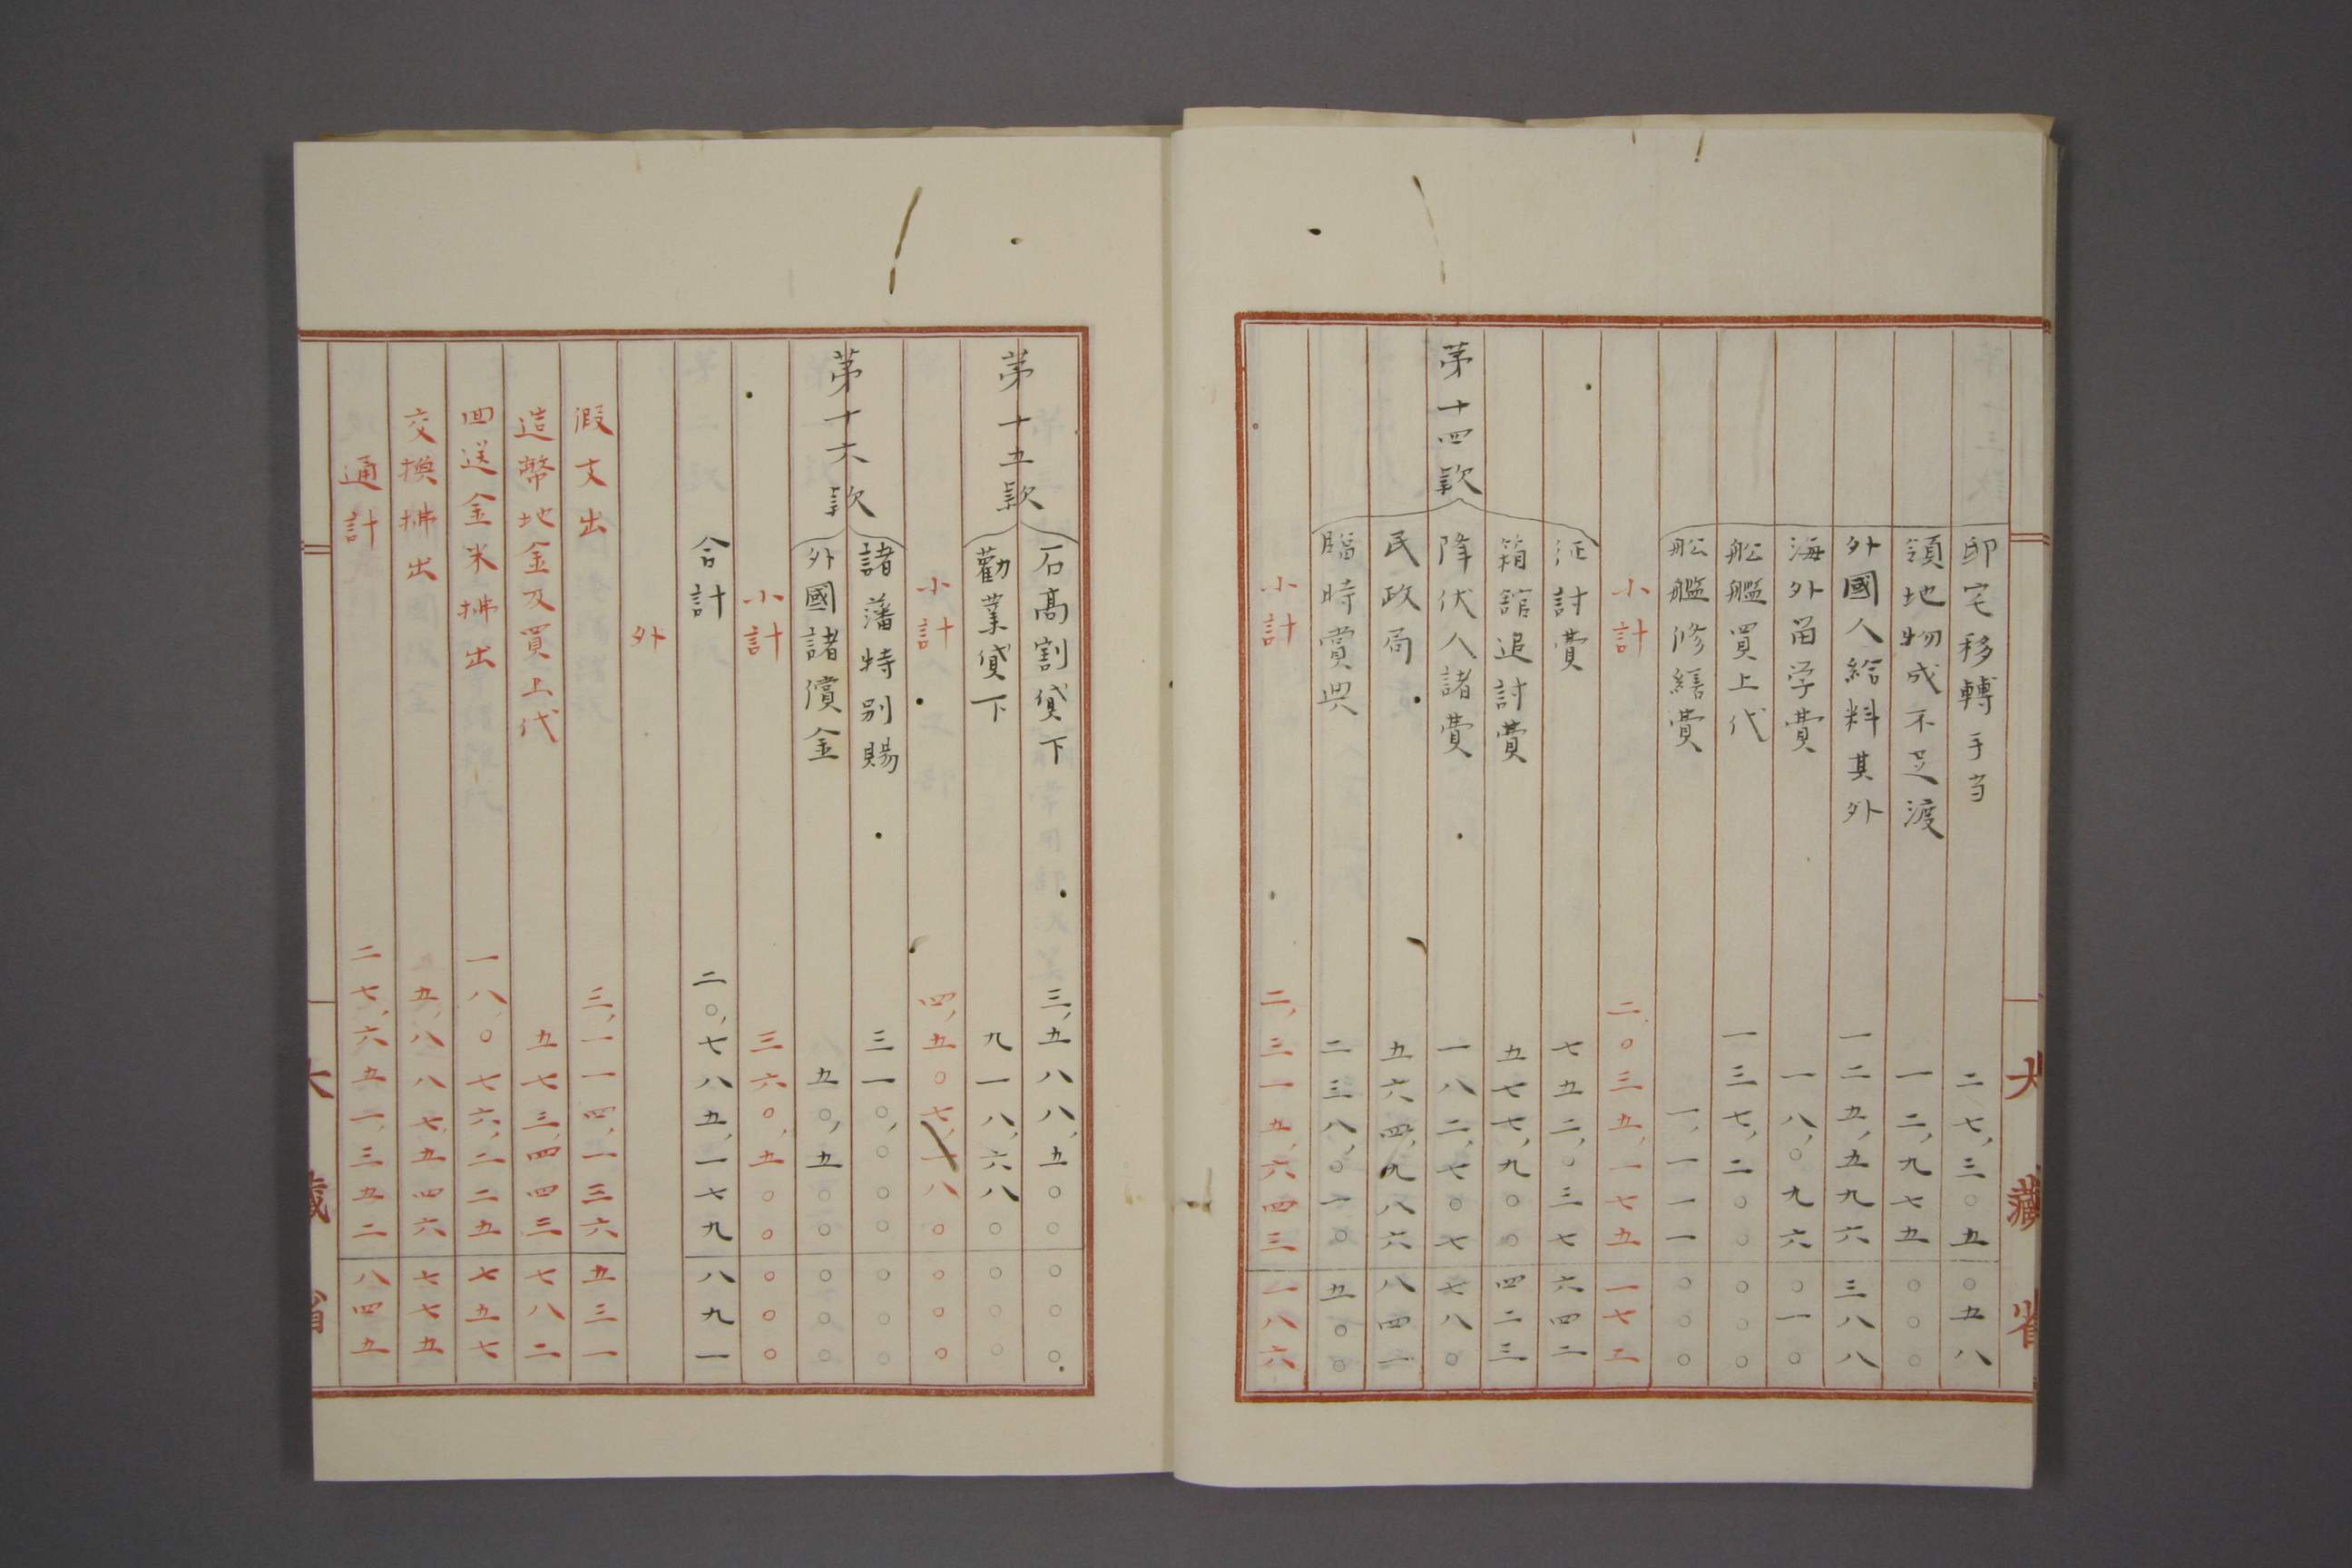 大藏省
邸宅移轉手当 二七,三〇五〇五八
領地物成不足渡 一二,九七五〇〇〇
外國人給料其外 一二五,五九六三八八
海外留学費 一八,〇九六〇一〇
舩艦買上代 一三七,二〇〇〇〇〇
舩艦修繕費 一,一一一〇〇〇
小計 二,〇三五,一七五一七二
第十四款 征討費 七五二,〇三七六四二
箱舘追討費 五七七,九〇〇四二三
降伏人諸費 一八二,七〇七七八〇
民政局 五六四,九八六八四一
臨時賞典 二三八,〇一〇五〇〇
小計 二,三一五,六四三一八六
第十五款 石高割貸下 三,五八八,五〇〇〇〇〇
勸業貸下 九一八,六八〇〇〇〇
小計 四,五〇七,一八〇〇〇〇
第十六款 諸藩特別賜 三一〇,〇〇〇〇〇〇
外國諸償金 五〇,五〇〇〇〇〇
小計 三六〇,五〇〇〇〇〇
合計 二〇,七八五,一七九八九一
外
假支出 三,一一四,一三六五三一
造幣地金及買上代 五七三,四四三七八二
回送金米拂出 一八,〇七六,二二五七五七
交換拂出 五,八八七,五四六七七五
通計 二七,六五一,三五二八四五
大藏省